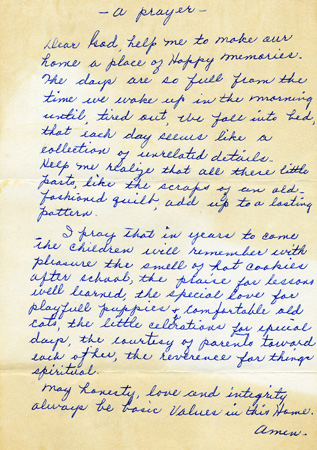 - a prayer -
Dear God, help me to make our
home a place of Happy memories.
The days are so full from the
time we wake up in the morning
until, tired out, We fall into bed,
that each day seems like a
collection of unrelated details.
Help me realize that all these little
parts, like the scraps of an old-
fashioned quilt, add up to a lasting
pattern.
I pray that in years to come
the children will remember with
pleasure the smell of hot cookies
after school, the plaise for lessons
well learned, the special love for
playfull puppies & comfortable old
cats, the little celerations for special
days, the courtesy of parents toward
each other, the reverence for things
spiritual.
May honesty, love and integrity
always be basic Values in this Home.
Amen.